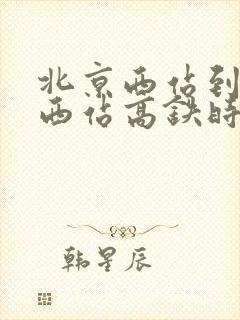 北京西站到
西站高铁时
韩星辰